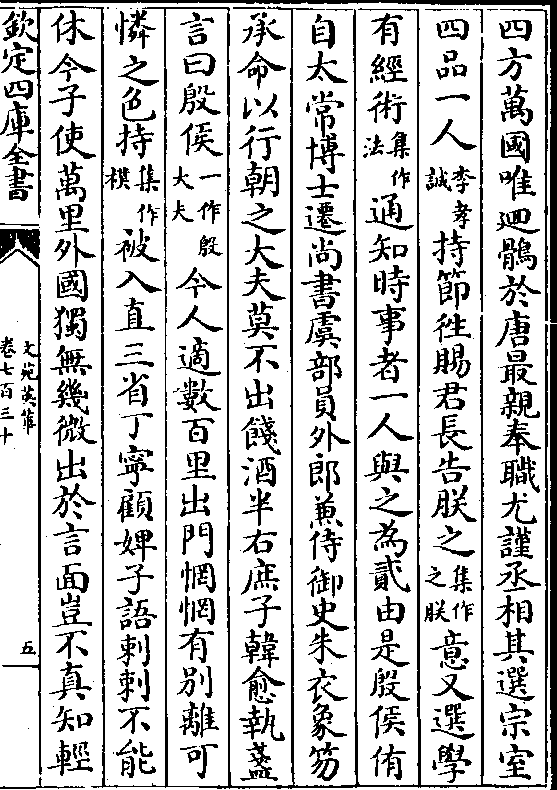 四方萬國唯迴鶻於唐最親奉職尤謹丞相其選宗室
四品一人李孝誠持節徃賜君長告朕之集作之朕意又選學
有經術集作法通知時事者一人與之為貳由是殷侯侑
自太常博士遷尚書虞部員外郎兼侍御史朱衣象笏
承命以行朝之大夫莫不出餞酒半右庶子韓愈執盞
言曰殷侯一作殷大夫今人適數百里出門惘惘有别離可
憐之色持集作樸被入直三省丁寧顧婢子語剌剌不能
休今子使萬里外國獨無幾微出於言面豈不真知輕
欽定四庫全書
文苑英華
卷七百三十
五